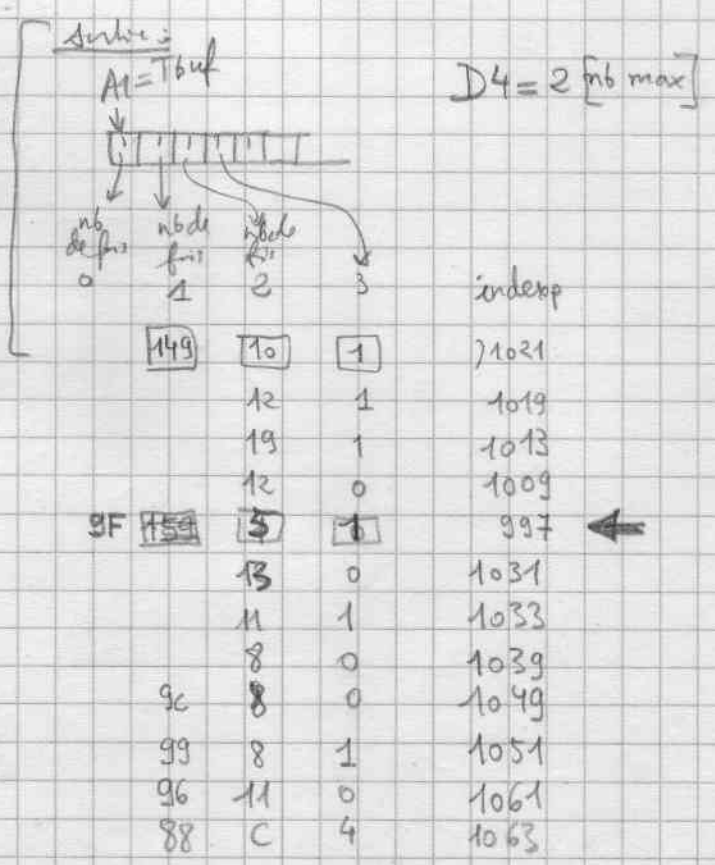 Sortie :
A1 = Tbuf
D4 = 2 [nb max]
nb de fois nb de fois nb de fois
0 1 2 3 indexp
149 10 1 1021
12 1 1019
19 1 1013
12 0 1009
9F 159 5 1 997
13 0 1031
11 1 1033
8 0 1039
9C 8 0 1049
99 8 1 1051
96 11 0 1061
88 C 4 1063